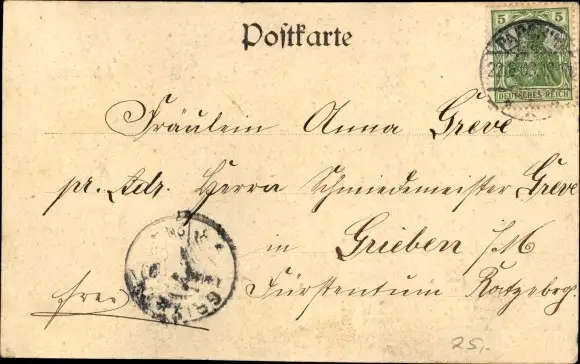 Postkarte
5 5
DEUTSCHES REICH
Fräulein Anna Greve
pr. Adr. Herrn Schmiedemeister Greve
in Grieben i/M
frei Fürstentum Ratzebrg.
25,